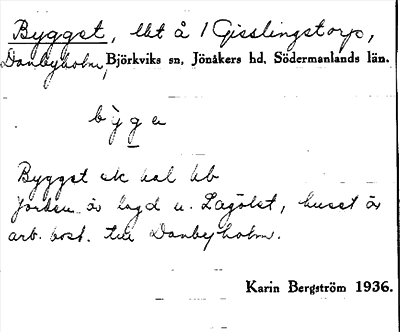 Byggst, llt å 1 Gisslingstorp,
Danbyholm, Björkviks sn, Jönåkers hd, Södermanlands län.
Byggst ek kal bb
Jorden är lagd u. Lagölst, huset är
arb. bost. till Danbyholm.
Karin Bergström 1936.